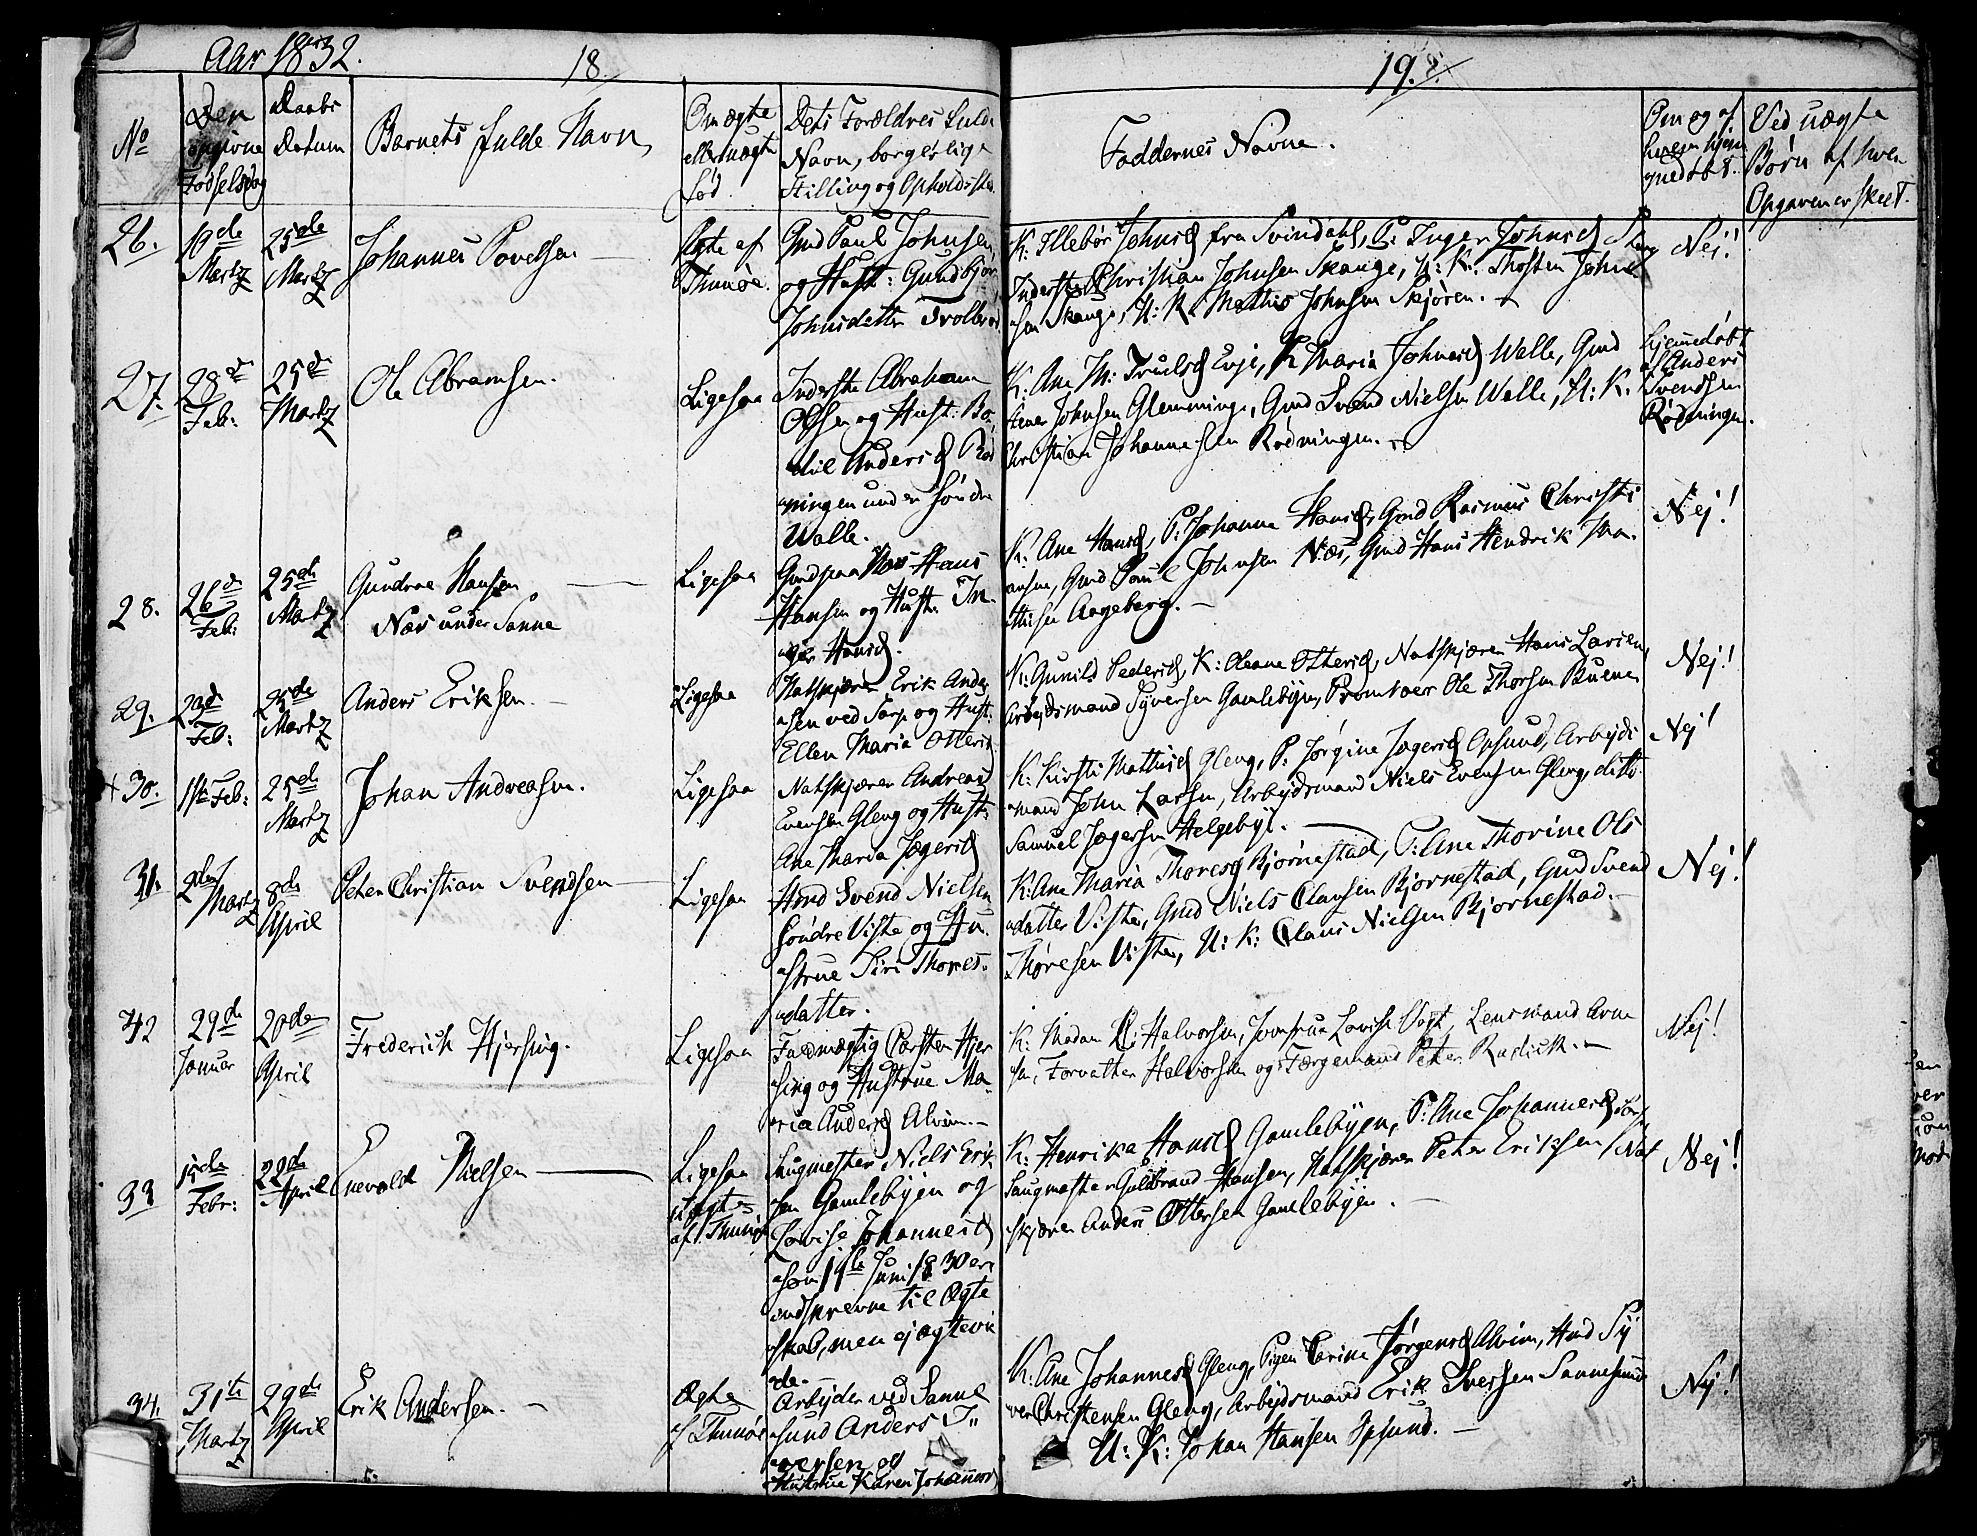 Aar 1832.
18
19.
No
Den
opgivne
Fødselsdag
Daabs
Datum
Barnets fulde Navn
Om ægte
eller uægte
Fød.
Dets Forældres fulde
Navn, borgerlige
Stilling og Opholdsste
Faddernes Navne.
Om og af
hvem hjem
medøbt.
Ved uægte
Børn af hvem
Opgaven er skeet.
26.
10de
Martz
25de
Martz
Johannes Povelsen
Ægte af
Thunøe.
Gmd Paul Johnsen
og Hust: Gundbjør
Johnsdatter Trolle
K: Illebør Johnsd fra Svindahl, P: Inger Johnsd
Inderste Christian Johnsen Skauge, U: K: Thosten John
sen Skauge, U: K. Mathis Johnsen Skjøren.
Nej!
27.
28de
Feb:
25de
Martz
Ole Abramsen.
Ligesaa
Inderste Abraham
Olsen og Hust: Bo
dil Andersd Rød
ningen under Søndre
Walle.
K: Ane M: Truelsd Evje, K Maria Johnsd Walle, Gmd
Johnsen Glemminge, Gmd Svend Nielsen Walle, U: K.
Christian Johannesen Rødningen.
hjemmedøbt
af Anders
Svendsen
Rødningen.
28.
26de
Feb:
25de
Martz
Gundroe Hansen
Næs under Sanne
Ligesaa
Gmd paa Næs Hans
Hansen og Hust. In
ger Hansd.
K: Ane Hansd, P: Johanna Hansd, Gmd Rasmus Christi
ansen, Gmd Poul Johnsen Næs, Gmd Hans Hendrik Ma
thisen Aageberg.
Nej!
29.
23de
Feb:
25de
Martz
Anders Eriksen.
Ligesaa
Natskjærer Erik Ander
sen ved Sarp og Hust:
Ellen Maria Ottersd
K: Gunild Pedersd, K: Oleane Ottersd, Natskjærer Hans Larsen,
Arbejdsmand Syversen Gamlebyen, Ole Thorsen
Nej!
30.
1ste Feb:
25de
Martz
Johan Andreasen.
Ligesaa
Natskjærer Andreas
Evensen Gleng og Hust:
Ane Maria Jægersd
K: Kirsti Mathisd Gleng, P: Jørgine Jægersd Opsund, Arbejds
mand John Larsen, Arbejdsmand Niels Evensen Gleng, ditto
Samuel Jægersen Helgebye.
Nej!
31.
2den
Martz
8de
April
Peter Christian Svendsen
Ligesaa
Hmd Svend Nielsen
Søndre Viste og Hu
strue Siri Thores
datter.
K: Ane Maria Thoresd Bjørnestad, P: Ane Thorine Ols
datter Viste, Gmd Niels Clausen Bjørnestad, Gmd Svend
Thøresen Viste, U: K: Claus Nielsen Bjørnestad.
Nej!
29de
Januar
20de
April
Frederich Hjersing.
Ligesaa
Fuldmægtig Carsten Hjer
sing og Hustrue Ma
ria Andersd Alvim.
K: Madam Halvorsen, Jomfrue Lovise Vogt, Lensmand Arne
sen, Forvalter Halvorsen og Færgemand Peter
Nej!
33
15de
Febr:
22de
April
Enevold Nielsen
Ligesaa
uægte
af Thunøe
Saugmester Niels Erik
sen Gamlebyen og
Lovise Johannesd
som 19de Juni 1830 ere
indskrevne til Ægte
skab, men ej ægtevi
de.
K: Henrika Hansd Gamlebyen, P: Ane Johannesd
Saugmester Guldbrand Hansen, Natskjærer Peter Eriksen, Nat
skjærer Anders Ottersen Gamlebyen.
Nej!
34.
31te
Martz
29de
April
Erik Andersen.
Ægte
af Thunøe
Arbejder ved Sanne
sund Anders I
versen og
Hustrue Karen Johannesd
K: Ane Johannesd Gleng, Pigen Karine Jørgensd Alvim, Hmd Sy
ver Christensen Gleng, Arbejdsmand Erik Iversen Sannesund
U: K: Johan Hansen Opsund.
Nej!